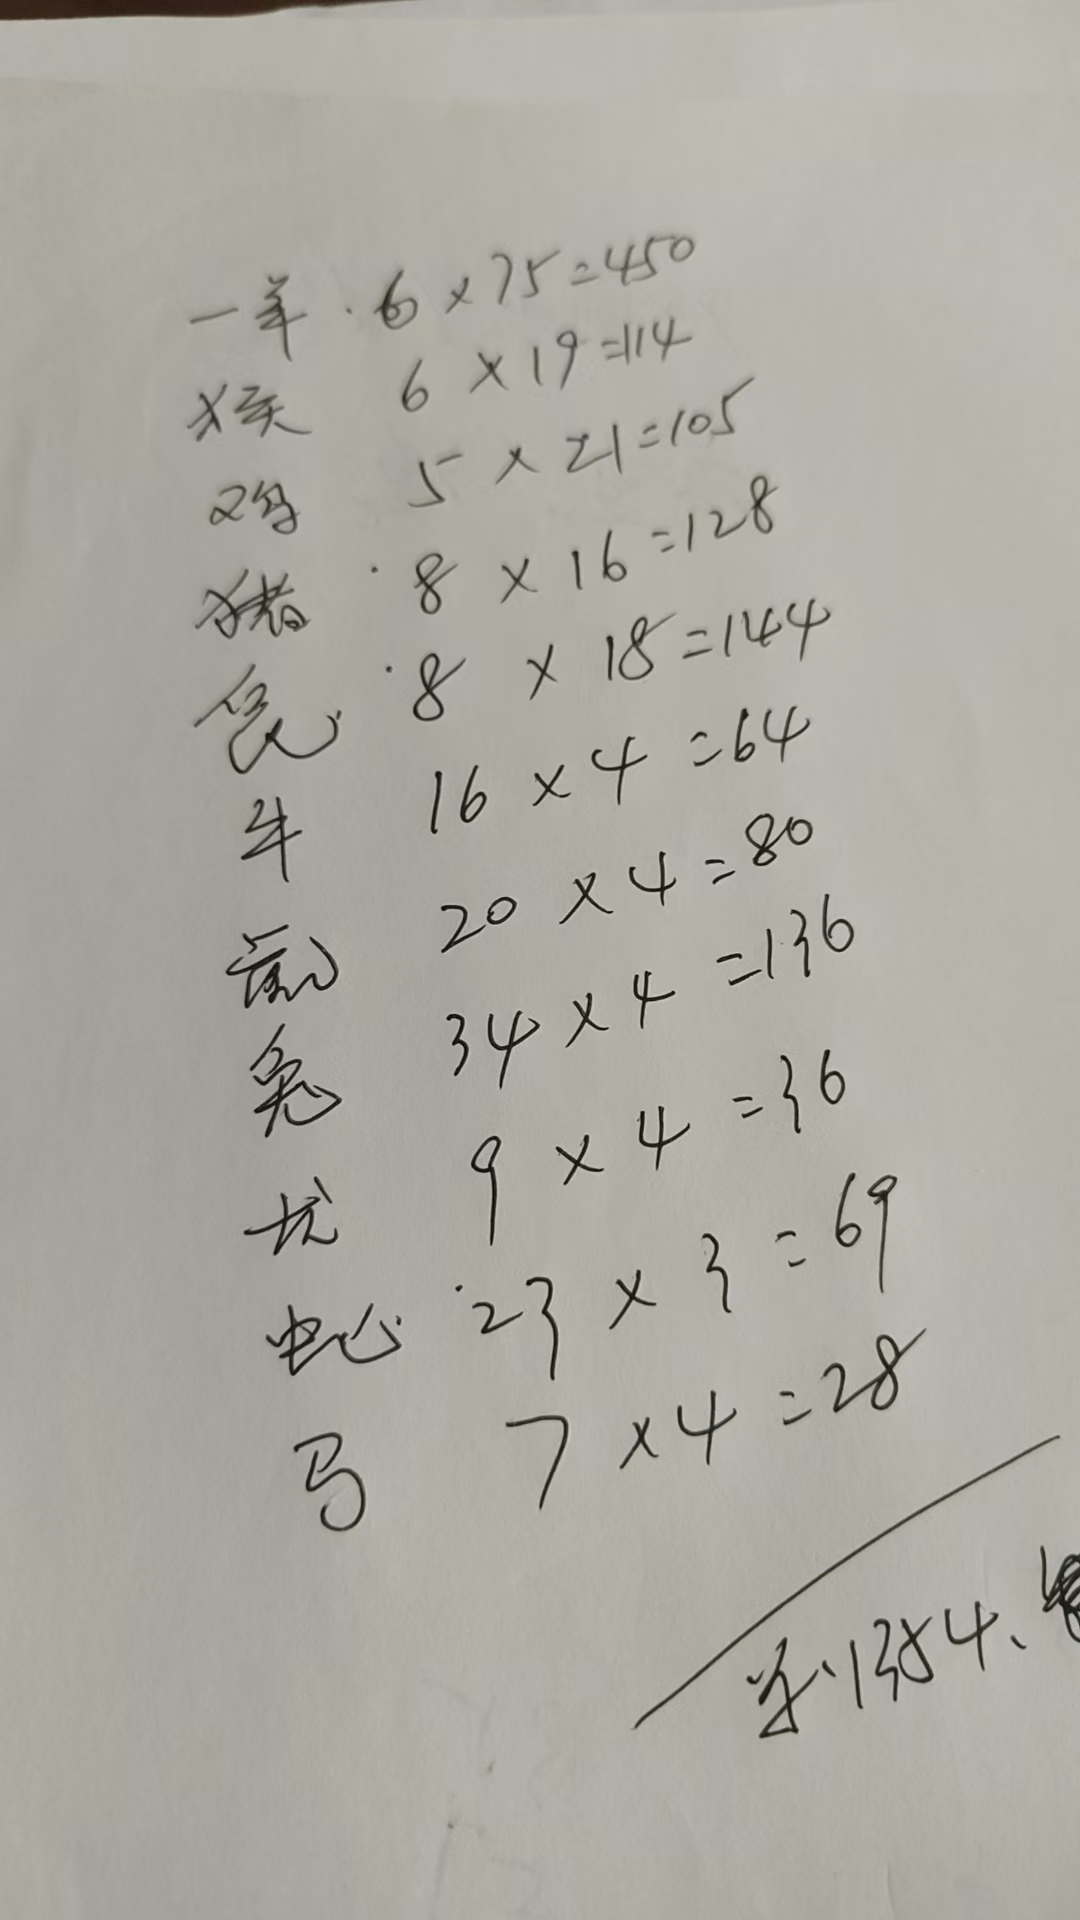 一羊·6×75=450
猴 6×19=114
鸡 5×21=105
猪·8×16=128
·8×18=144
牛 16×4=64
鼠 20×4=80
兔 34×4=136
龙 9×4=36
蛇·23×3=69
马 7×4=28
1354、